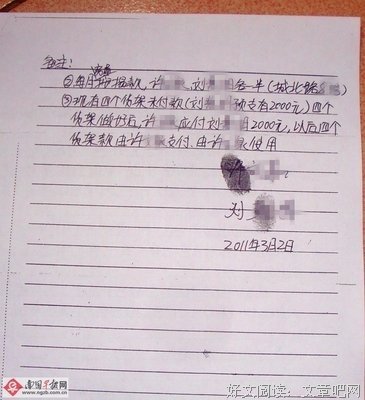 备注:
②每月按揭款,许 刘 各半(城北路
③现有四个货架未付款(刘 预支有2000元)四个
货架做好后,许 应付刘 2000元,以后四个
货架款由许 支付、由许 使用
许
刘
2011年3月2日
南国早报网
www.ngzb.com.cn
好文阅读:文章吧网